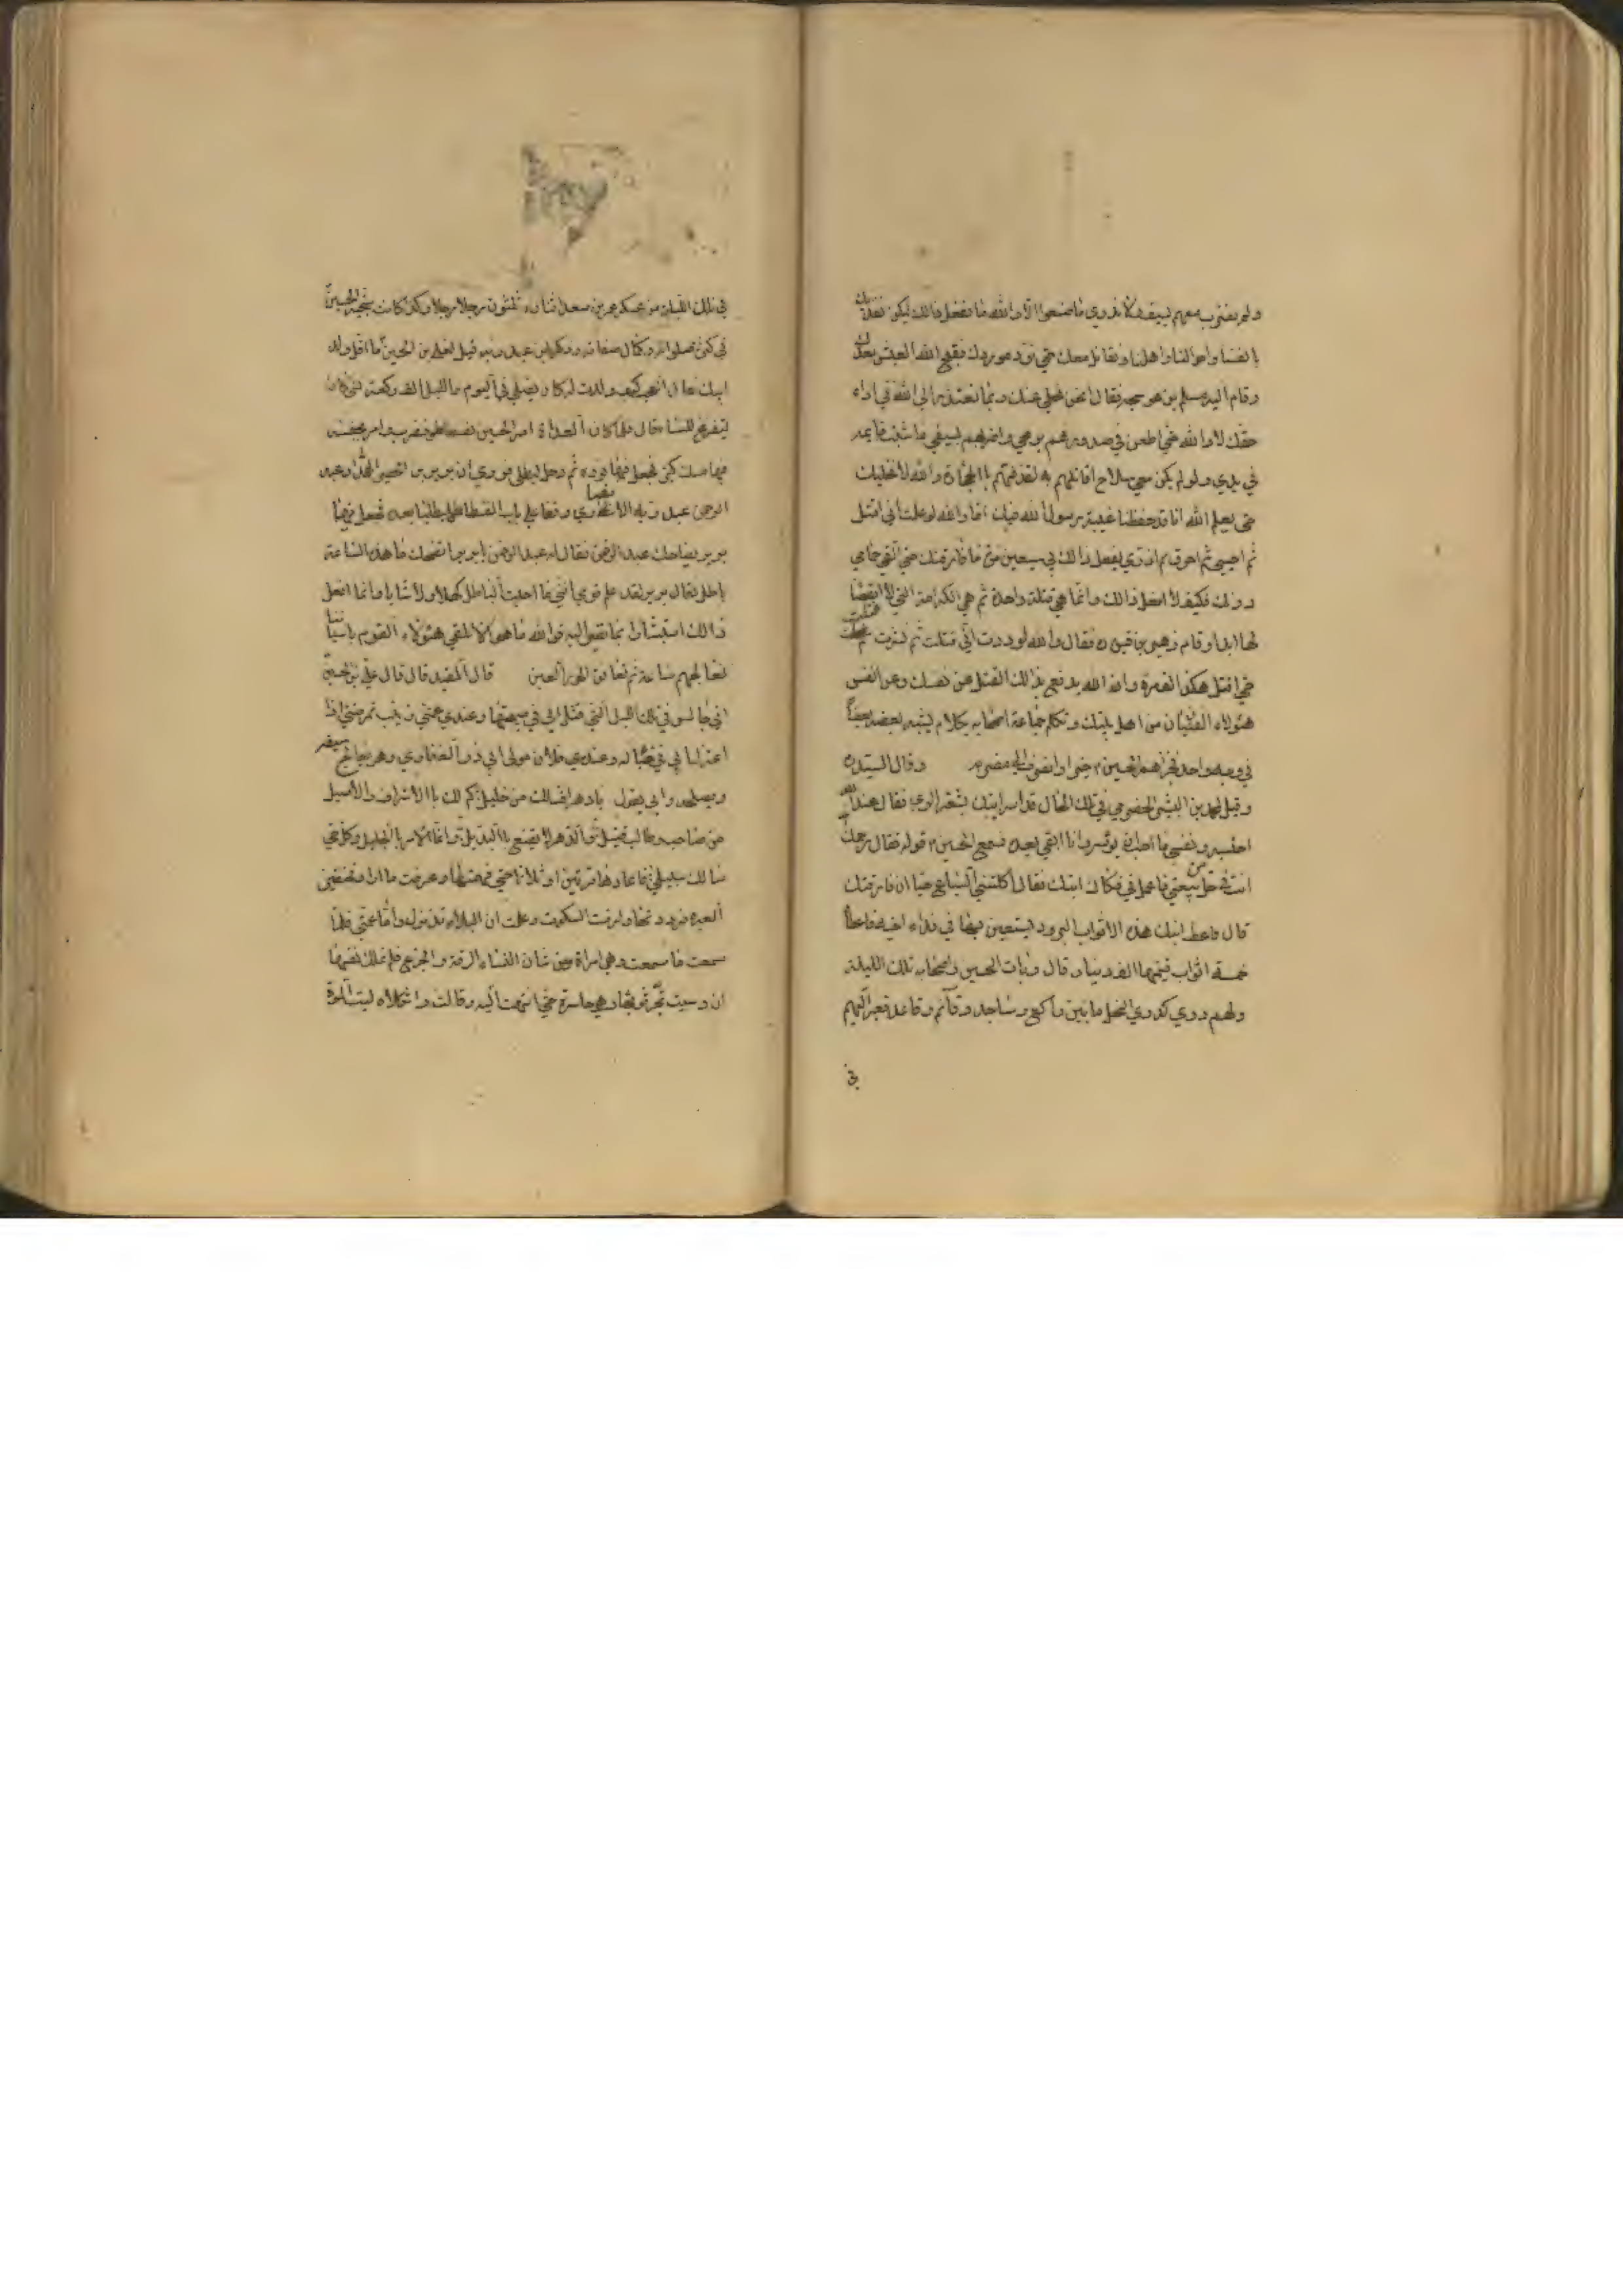 ولم نضرب معهم بسيف ولا ندري ما صنعوا لا والله ما نفعل ذالك ولكن نفديك
بانفسنا واموالنا واهلنا ونقاتل معك حتى نرد موردك فقبح الله العيش بعدك
وقام اليه مسلم بن عوسجه فقال انحن نخلي عنك وبما نعتذر الى الله في اداء
حقك لا والله حتى اطعن في صدورهم برمحي واضربهم بسيفي ما ثبت قايمه
في يدي ولو لم يكن معي سلاح اقاتلهم به لقذفتهم باالحجارة والله لا نخليك
حتى يعلم الله انا قد حفظنا غيبة رسول الله فيك اما والله لو علمت اني اقتل
ثم احيى ثم احرق ثم اذرى يفعل ذالك بي سبعين مرة ما فارقتك حتى القى حمامي
دونك فكيف لا افعل ذالك وانما هي قتلة واحدة ثم هي الكرامة التي لا انقضا
لها ابدا وقام زهير بن قين ره فقال والله لوددت اني قتلت ثم نشرت ثم قتلت
حتى اقتل هكذا الف مرة وان الله يدفع بذالك القتل عن نفسك وعن انفس
هؤلاء الفتيان من اهل بيتك وتكلم جماعة اصحابه بكلام يشبه بعضه بعضا
في وجه واحد فجزاهم الحسين خيرا وانصرف الى مضربه وقال السيد ره
وقيل لمحمد بن البشر الحضرمي في تلك الحال قد اسر ابنك بثغر الري فقال عند الله
احتسبه ونفسي ما احب ان يوسر وانا ابقى بعده فسمع الحسين قوله فقال رحمك الله
انت في حل من بيعتي فاعمل في فكاك ابنك فقال اكلتني السباع حيا ان فارقتك
قال فاعط ابنك هذه الاثواب البرود يستعين بها في فداء اخيه فاعطاه
خمسة اثواب قيمتها الف دينار قال وبات الحسين واصحابه تلك الليلة
ولهم دوي كدوي النحل ما بين راكع وساجد وقآئم وقاعد فعبر اليهم
في
في تلك الليلة من عسكر عمر بن سعد اثنان وثلثون رجلا وكذا كانت سجية الحسين
في كثرة صلواته وكمال صفاته وذكر ابن عبد ربه قيل لعلي بن الحسين ما اقل ولد
ابيك فقال العجب كيف ولدت له كان يصلي في اليوم والليل الف ركعة فمتى كان
يتفرغ للنسا قال فلما كان الغداة امر الحسين بفسطاط فضرب وامر بجفنة
فيها مسك كثير فجعل فيها نورة ثم دخل ليطلي فروي ان برير بن خضير الهمداني وعبد
الرحمن عبد ربه الانصاري وقفا على باب الفسطاط ليطليا بعده فجعل
برير يضاحك عبد الرحمن فقال له عبد الرحمن يا برير اتضحك ما هذه الساعة
باطل فقال برير لقد علم قومي انني ما احببت الباطل كهلا ولا شابا وانما افعل
ذالك استبشارا بما نصير اليه فوالله ما هو الا ان نلقي هؤلاء القوم باسيافنا
نعالجهم ساعة ثم نعانق الحور العين قال المفيد قال قال علي بن الحسين
اني جالس في تلك الليل التي قتل ابي في صبيحتها وعندي عمتي زينب تمرضني اذا
اعتزل ابي في خباء له وعنده فلان مولى ابي ذر الغفاري وهو يعالج سيفه
ويصلحه وابي يقول يا دهر اف لك من خليل كم لك باالاشراق والاصيل
من صاحب وطالب قتيل والدهر لا يقنع باالبديل وانما الامر الى الجليل وكل حي
سالك سبيلي فاعادها مرتين او ثلاثا حتى فهمتها وعرفت ما اراد فخنقتني
العبرة فرددتها ولزمت السكوت وعلمت ان البلاء قد نزل واما عمتي فلما
سمعت ما سمعت وهي امراة ومن شان النساء الرقة والجزع فلم تملك نفسها
ان وثبت تجر ثوبها وهي حاسرة حتى انتهت اليه وقالت وا ثكلاه ليت الموت